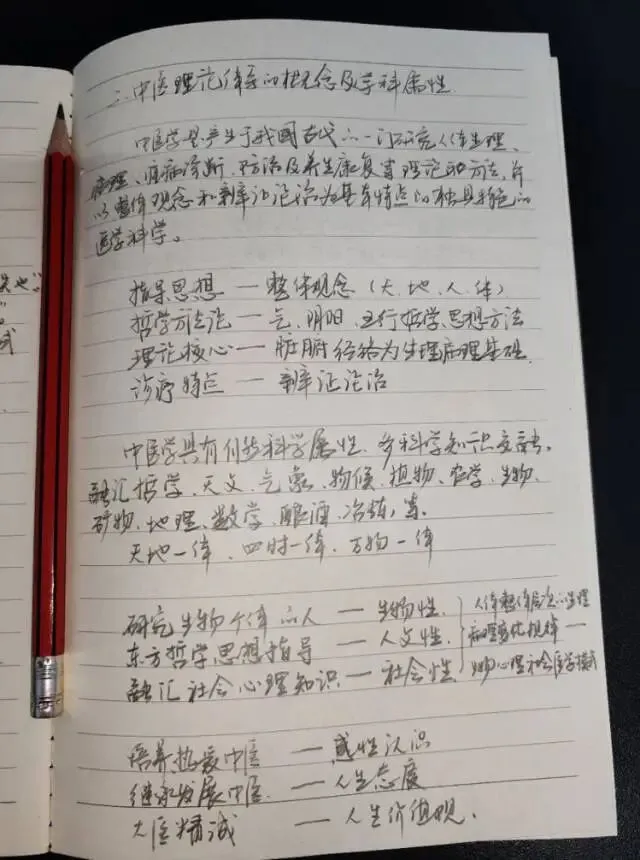 二、中医理论体系的概念及学科属性
中医学是产生于我國古代的一门研究人体生理、
病理、疾病诊断、防治及养生康复等理论和方法,并
以整体观念和辨证论治为基本特点的独具特色的
医学科学。
指导思想 — 整体观念(天、地、人、体)
哲学方法论 — 气、阴阳、五行哲学思想方法
理论核心 — 脏腑经络为生理病理基础
诊疗特点 — 辨证论治
中医学具有什么科学属性,多科学知识交融,
融汇哲学、天文、气象、物候、植物、农学、生物、
矿物、地理、数学、酿酒、冶炼,等.
天地一体、四时一体、万物一体
研究生物个体的人 — 生物性. 人体整体层次的生理
东方哲学思想指导 — 人文性. 病理变化规律 —
融汇社会心理知识 — 社会性 生物心理社会医学模式
培养热爱中医 — 感性认识
继承发展中医. — 人生态度
大医精诚 — 人生价值观.
地"